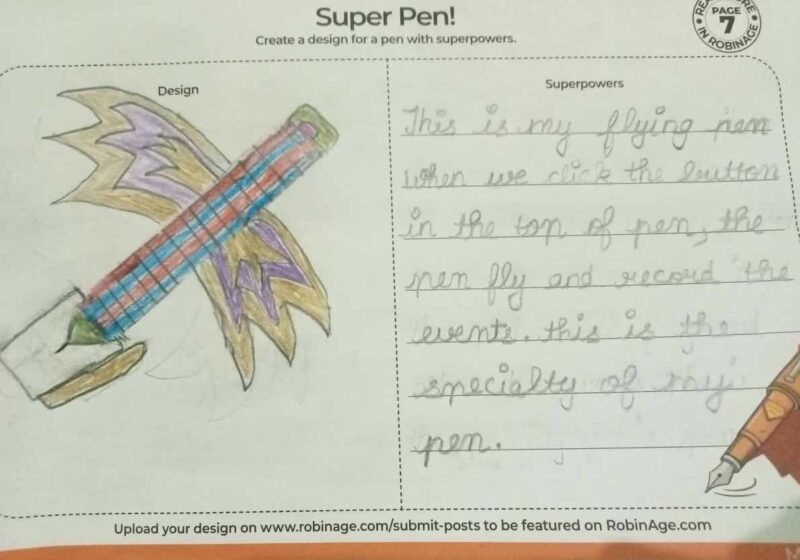 Super Pen!
Create a design for a pen with superpowers.
PAGE
7
IN ROBINAGE
Design
Superpowers
This is my flying pen
when we click the button
in the top of pen, the
pen fly and record the
events. this is the
specialty of my
pen.
Upload your design on www.robinage.com/submit-posts to be featured on RobinAge.com